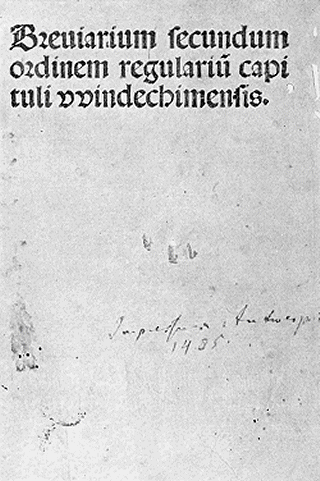 Breuiarium secundum
ordinem regulariū capi
tuli vvindechimensis.
Impressum Antwerpi
1485